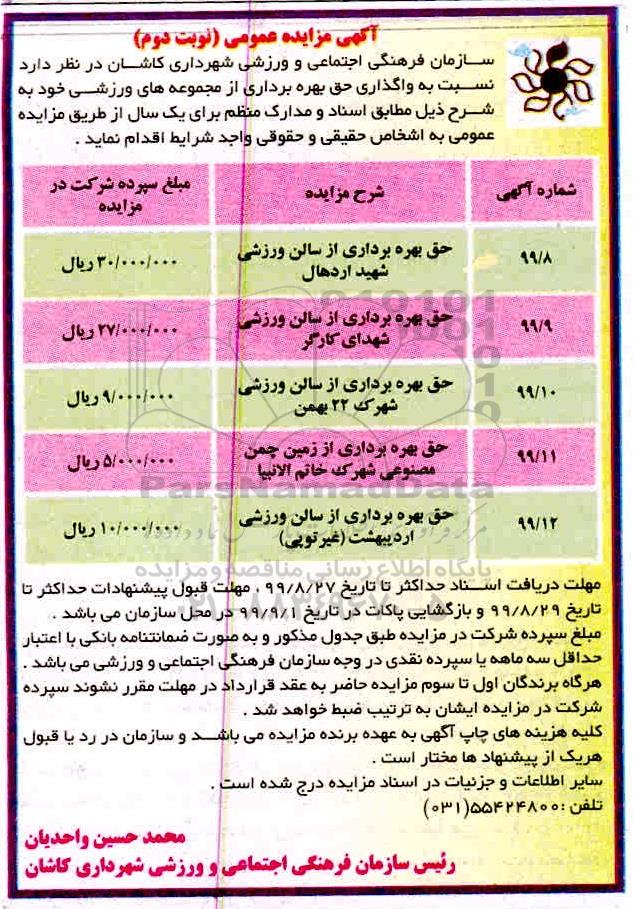 آگهی مزایده عمومی (نوبت دوم)
سازمان فرهنگی اجتماعی و ورزشی شهرداری کاشان در نظر دارد
نسبت به واگذاری حق بهره برداری از مجموعه های ورزشی خود به
شرح ذیل مطابق اسناد و مدارک منظم برای یک سال از طریق مزایده
عمومی به اشخاص حقیقی و حقوقی واجد شرایط اقدام نماید .
شماره آگهی
شرح مزایده
مبلغ سپرده شرکت در
مزایده
۹۹/۸
حق بهره برداری از سالن ورزشی
شهید اردهال
۳۰/۰۰۰/۰۰۰ ریال
۹۹/۹
حق بهره برداری از سالن ورزشی
شهدای کارگر
۲۷/۰۰۰/۰۰۰ ریال
۹۹/۱۰
حق بهره برداری از سالن ورزشی
شهرک ۲۲ بهمن
۹/۰۰۰/۰۰۰ ریال
۹۹/۱۱
حق بهره برداری از زمین چمن
مصنوعی شهرک خاتم الانبیا
۵/۰۰۰/۰۰۰ ریال
۹۹/۱۲
حق بهره برداری از سالن ورزشی
اردیبهشت (غیرتوپی)
۱۰/۰۰۰/۰۰۰ ریال
ParsNamadData
پایگاه اطلاع رسانی مناقصه و مزایده
مهلت دریافت اسناد حداکثر تا تاریخ ۹۹/۸/۲۷ ، مهلت قبول پیشنهادات حداکثر تا
تاریخ ۹۹/۸/۲۹ و بازگشایی پاکات در تاریخ ۹۹/۹/۱ در محل سازمان می باشد .
مبلغ سپرده شرکت در مزایده طبق جدول مذکور و به صورت ضمانتنامه بانکی با اعتبار
حداقل سه ماهه یا سپرده نقدی در وجه سازمان فرهنگی اجتماعی و ورزشی می باشد .
هرگاه برندگان اول تا سوم مزایده حاضر به عقد قرارداد در مهلت مقرر نشوند سپرده
شرکت در مزایده ایشان به ترتیب ضبط خواهد شد .
کلیه هزینه های چاپ آگهی به عهده برنده مزایده می باشد و سازمان در رد یا قبول
هریک از پیشنهاد ها مختار است .
سایر اطلاعات و جزئیات در اسناد مزایده درج شده است .
تلفن :۵۵۴۲۴۸۰۰(۰۳۱)
محمد حسین واحدیان
رئیس سازمان فرهنگی اجتماعی و ورزشی شهرداری کاشان